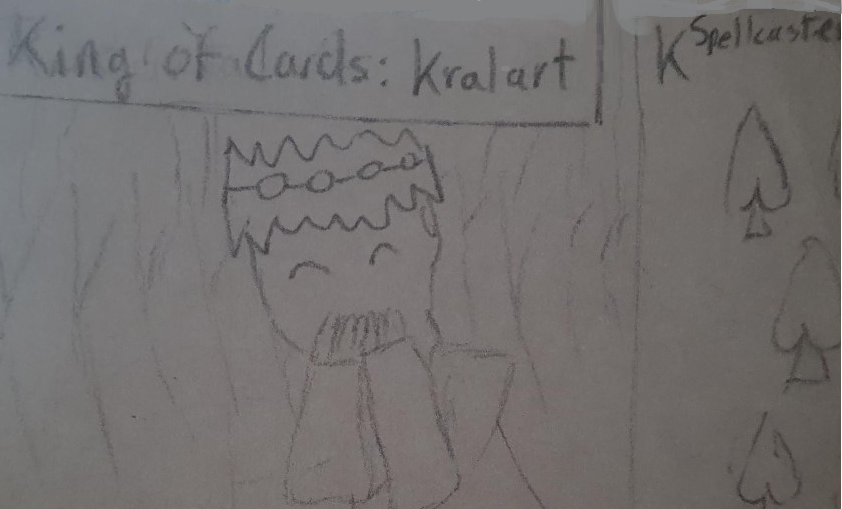 King of Cards: Kralart
K Spellcaster